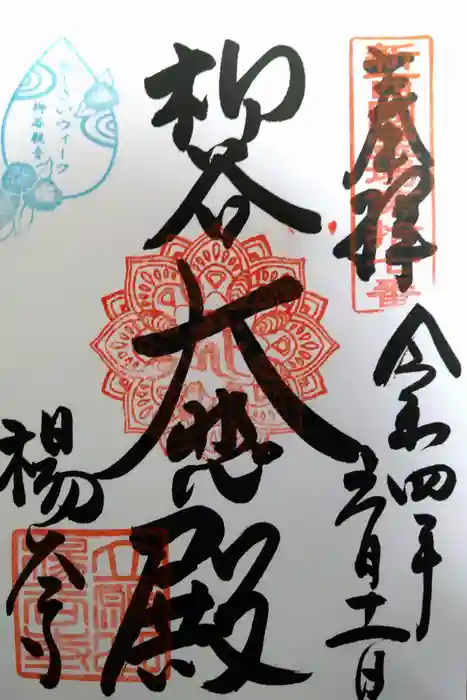 奉拝
令和四年
五月十一日
柳谷
大悲殿
楊谷寺
あじさいウィーク
柳谷観音